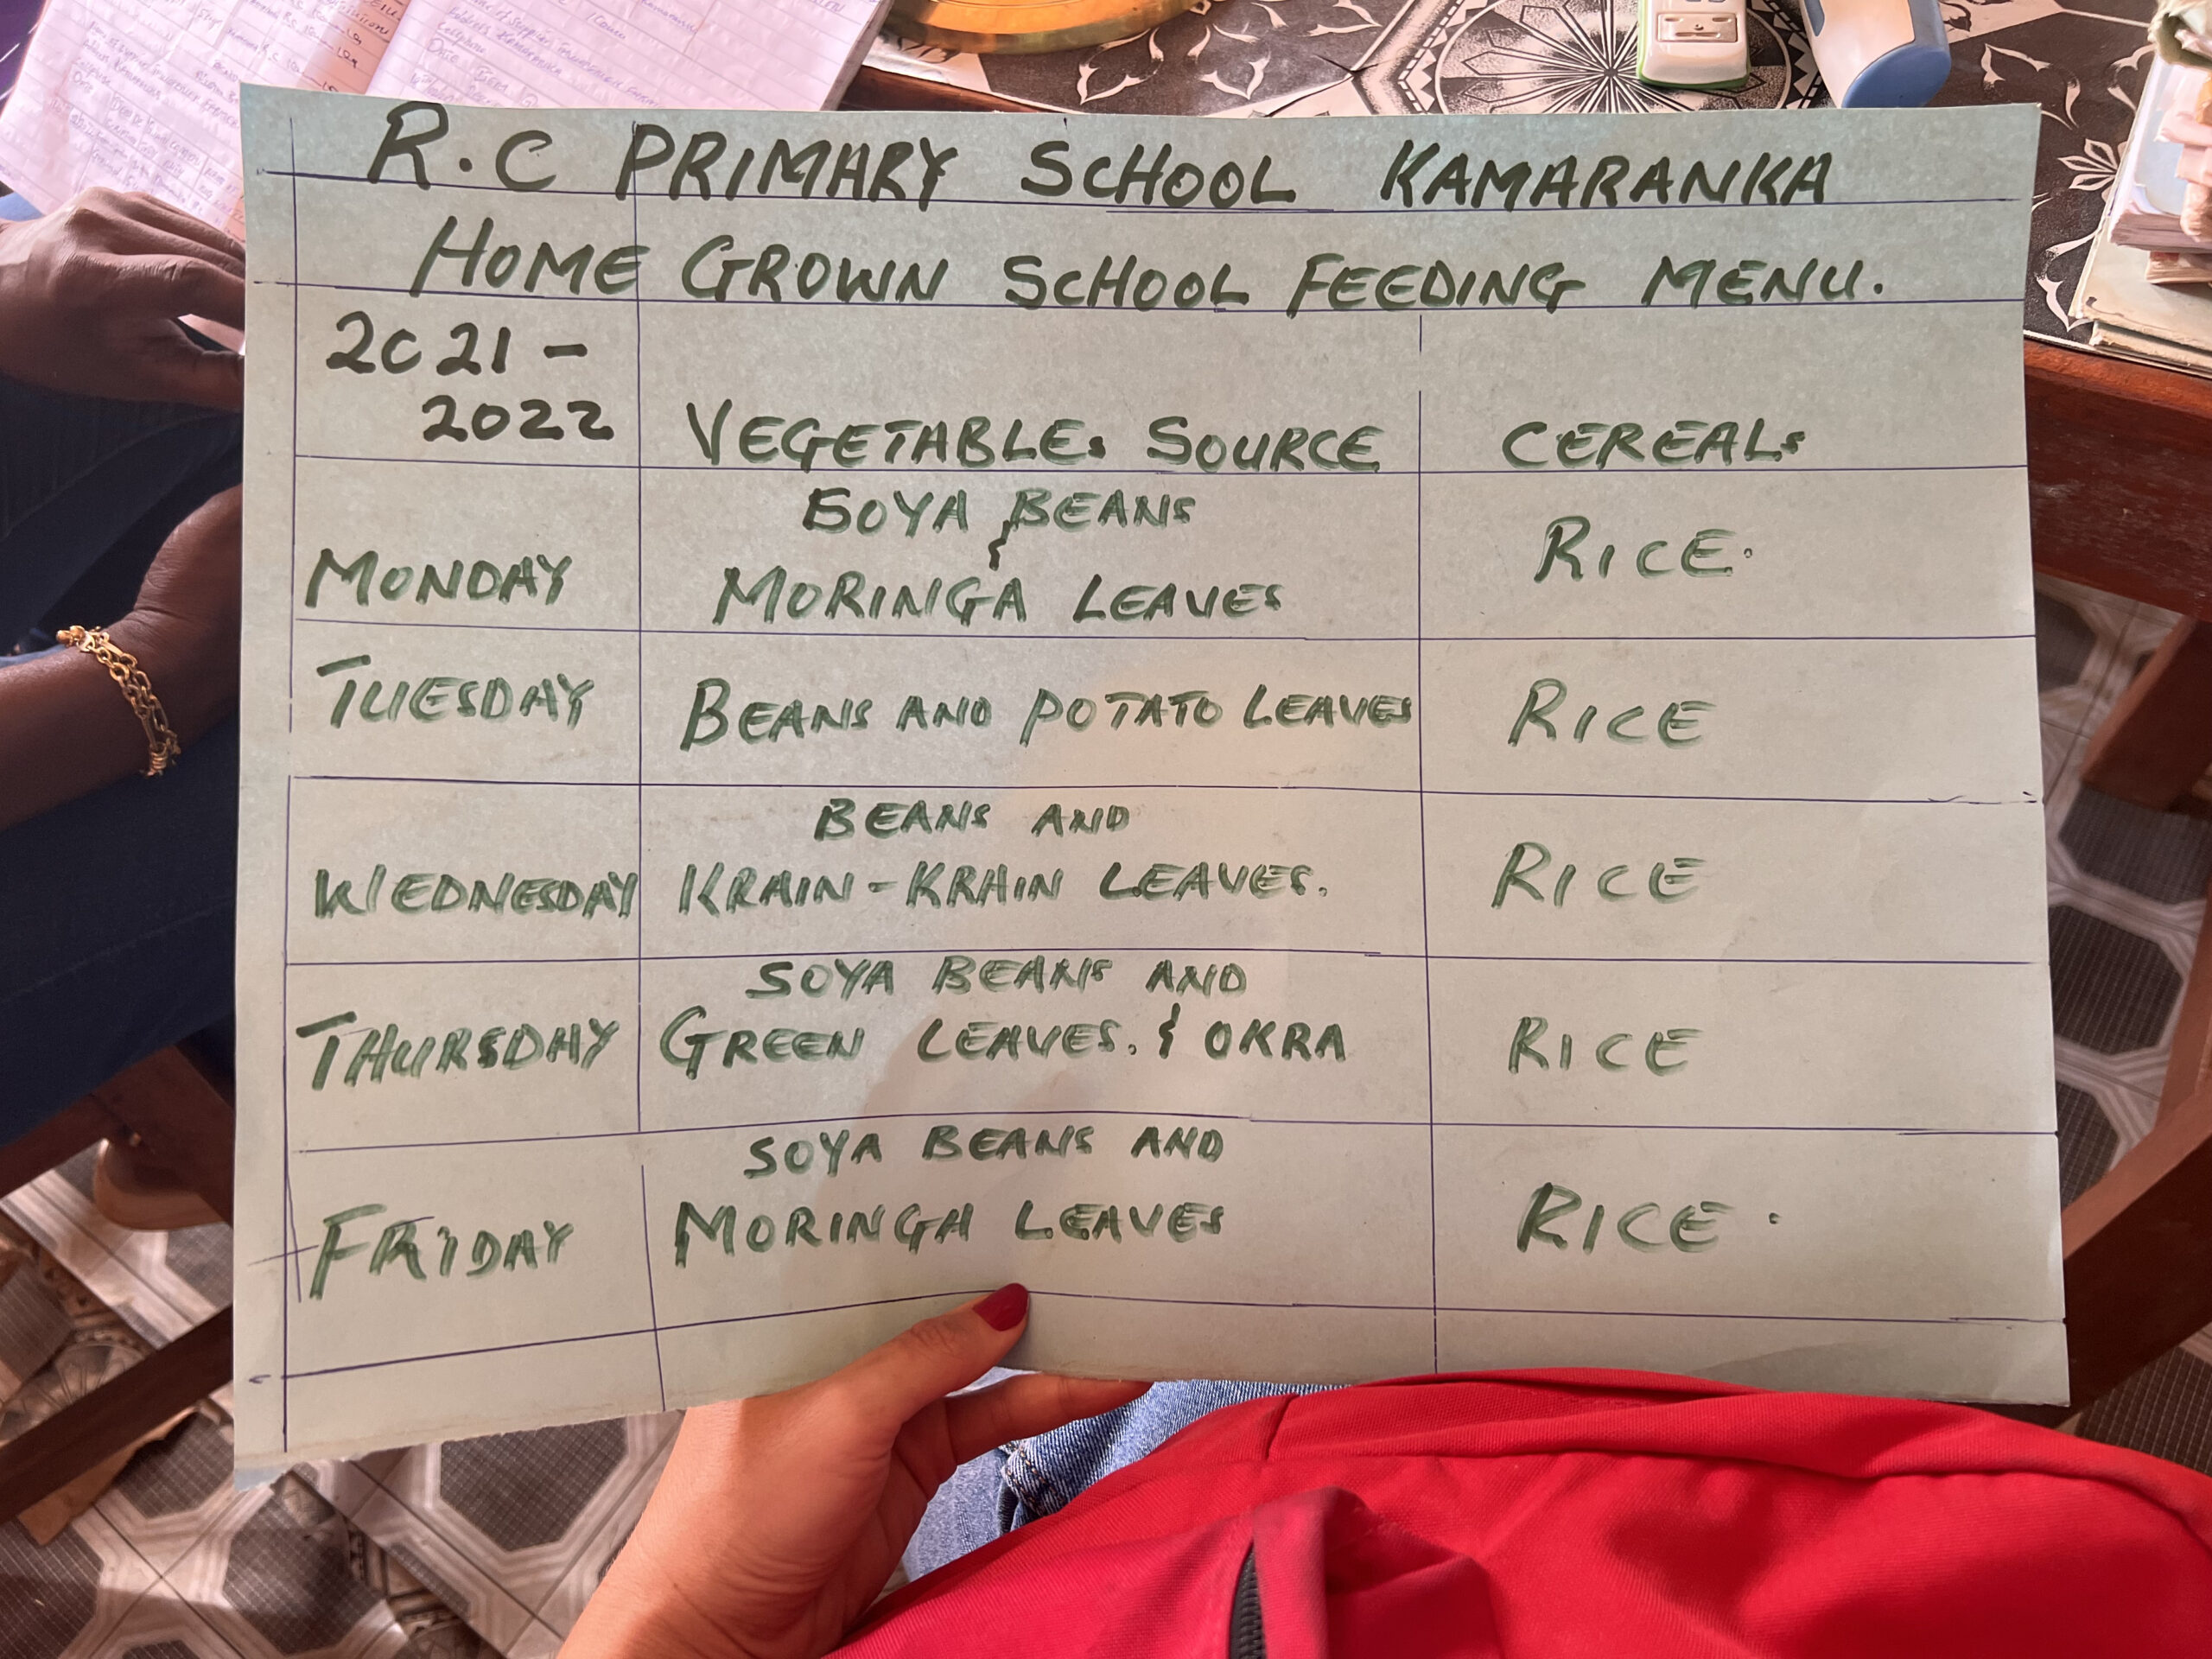 R.C PRIMARY SCHOOL KAMARANKA
HOME GROWN SCHOOL FEEDING MENU.
2021 -
2022
VEGETABLES SOURCE
CEREALS
MONDAY
SOYA BEANS
&
MORINGA LEAVES
RICE.
TUESDAY
BEANS AND POTATO LEAVES
RICE
WEDNESDAY
BEANS AND
KRAIN-KRAIN LEAVES.
RICE
THURSDAY
SOYA BEANS AND
GREEN LEAVES. & OKRA
RICE
FRIDAY
SOYA BEANS AND
MORINGA LEAVES
RICE.